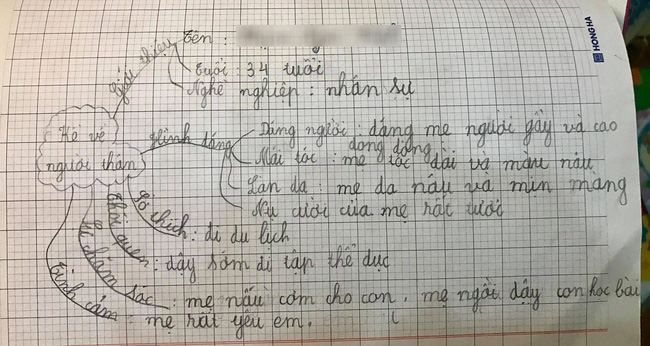 HONG HA
Giới thiệu
Tên :
Tuổi : 34 tuổi
Nghề nghiệp : nhân sự
Kể về
người thân
Hình dáng
Dáng người : dáng mẹ người gầy và cao
dong dỏng
Mái tóc : mẹ tóc dài và màu nâu
Làn da : mẹ da nâu và mịn màng
Nụ cười của mẹ rất tươi
Sở thích : đi du lịch
Thói quen : dậy sớm đi tập thể dục
chăm sóc : mẹ nấu cơm cho con, mẹ ngồi dậy con học bài
Tình cảm : mẹ rất yêu em.